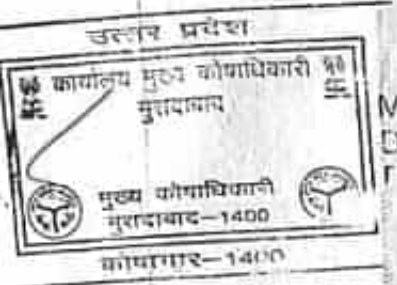 उत्तर प्रदेश
कार्यालय मुख्य कोषाधिकारी
मुरादाबाद
मुख्य कोषाधिकारी
मुरादाबाद–1400
कोषागार–1400